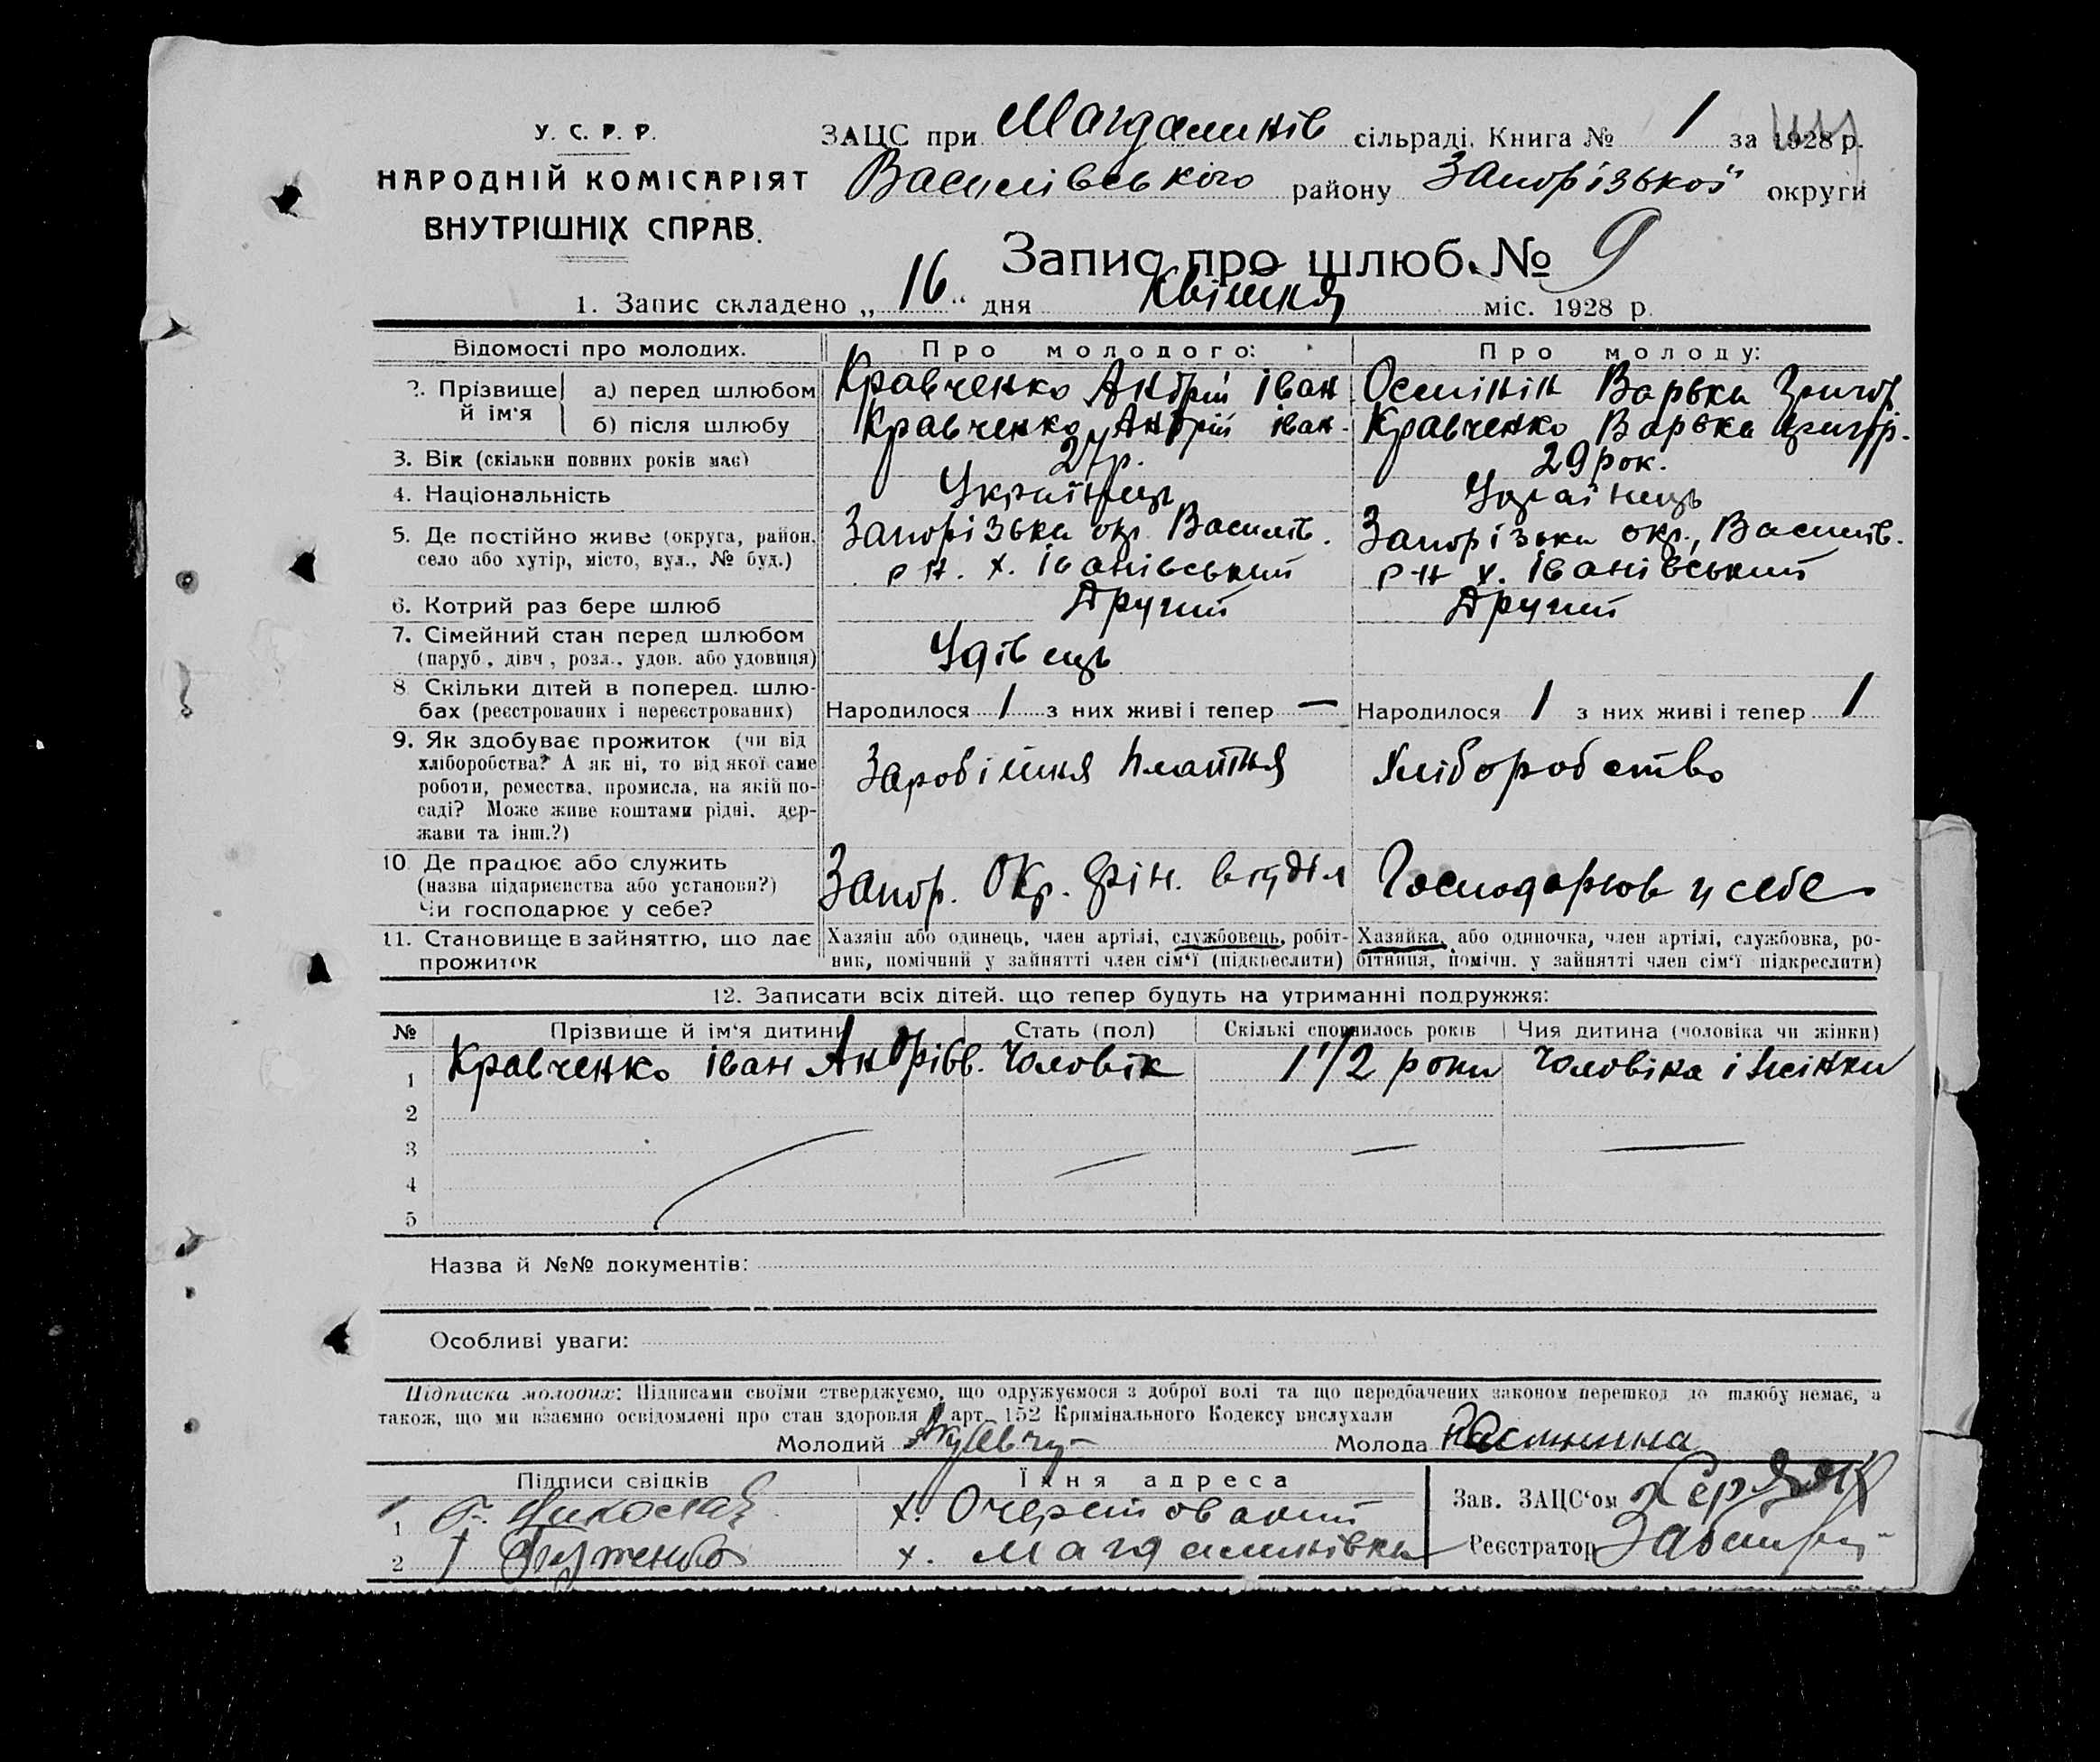 У. С. Р. Р.
НАРОДНІЙ КОМІСАРІЯТ
ВНУТРІШНІХ СПРАВ.
ЗАЦС при Магдалинів сільраді. Книга № 1 за 1928 р.
Василівського району Запорізької округи
Запис про шлюб. № 9
1. Запис складено „ 16 “ дня Квітня міс. 1928 р.
Відомості про молодих. Про молодого: Про молоду:
2. Прізвище й ім‘я
а) перед шлюбом Кравченко Андрій Іван Осьмінін Варька Григор
б) після шлюбу Кравченко Андрій іван. Кравченко Варька Григор.
3. Вік (скільки повних років має) 27 р. 29 рок.
4. Національність Українець Українець
5. Де постійно живе (округа, район, Запорізька окр. Василів. Запорізька окр., Василів.
село або хутір, місто, вул., № буд.) р-н. х. Іванівський р-н х. Іванівський
6. Котрий раз бере шлюб Другий Другий
7. Сімейний стан перед шлюбом
(паруб., дівч., розл., удов. або удовиця) Удівець
8. Скільки дітей в поперед. шлю-
бах (реєстрованих і нереєстрованих) Народилося 1 з них живі і тепер — Народилося 1 з них живі і тепер 1
9. Як здобуває прожиток (чи від
хліборобства? А як ні, то від якої саме Заробітня платня Хліборобство
роботи, ремества, промисла, на якій по-
саді? Може живе коштами рідні, дер-
жави та інш.?)
10. Де працює або служить
(назва підприємства або установи?) Запор. Окр. фін. відділ Господарює у себе
Чи господарює у себе?
11. Становище в зайняттю, що дає прожиток
Хазяїн або одинець, член артілі, службовець, робіт-
ник, помічний у зайнятті член сім‘ї (підкреслити)
Хазяйка, або одиночка, член артілі, службовка, ро-
бітниця, помічн. у зайнятті член сім‘ї підкреслити)
12. Записати всіх дітей, що тепер будуть на утриманні подружжя:
№ Прізвище й ім‘я дитини Стать (пол) Скількі сповнилось років Чия дитина (чоловіка чи жінки)
1 Кравченко Іван Андрієв. Чоловік 1 1/2 роки Чоловіка і жінки
2
3
4
5
Назва й №№ документів:
Особливі уваги:
Підписка молодих: Підписами своїми стверджуємо, що одружуємося з доброї волі та що передбачених законом перешкод до шлюбу немає, а
також, що ми взаємно освідомлені про стан здоровля й арт. 152 Кримінального Кодексу вислухали
Молодий Молода
Підписи свідків Їхня адреса
1 х. Очеретоватий
2 х. Магдалинівка
Зав. ЗАЦС‘ом
Реєстратор